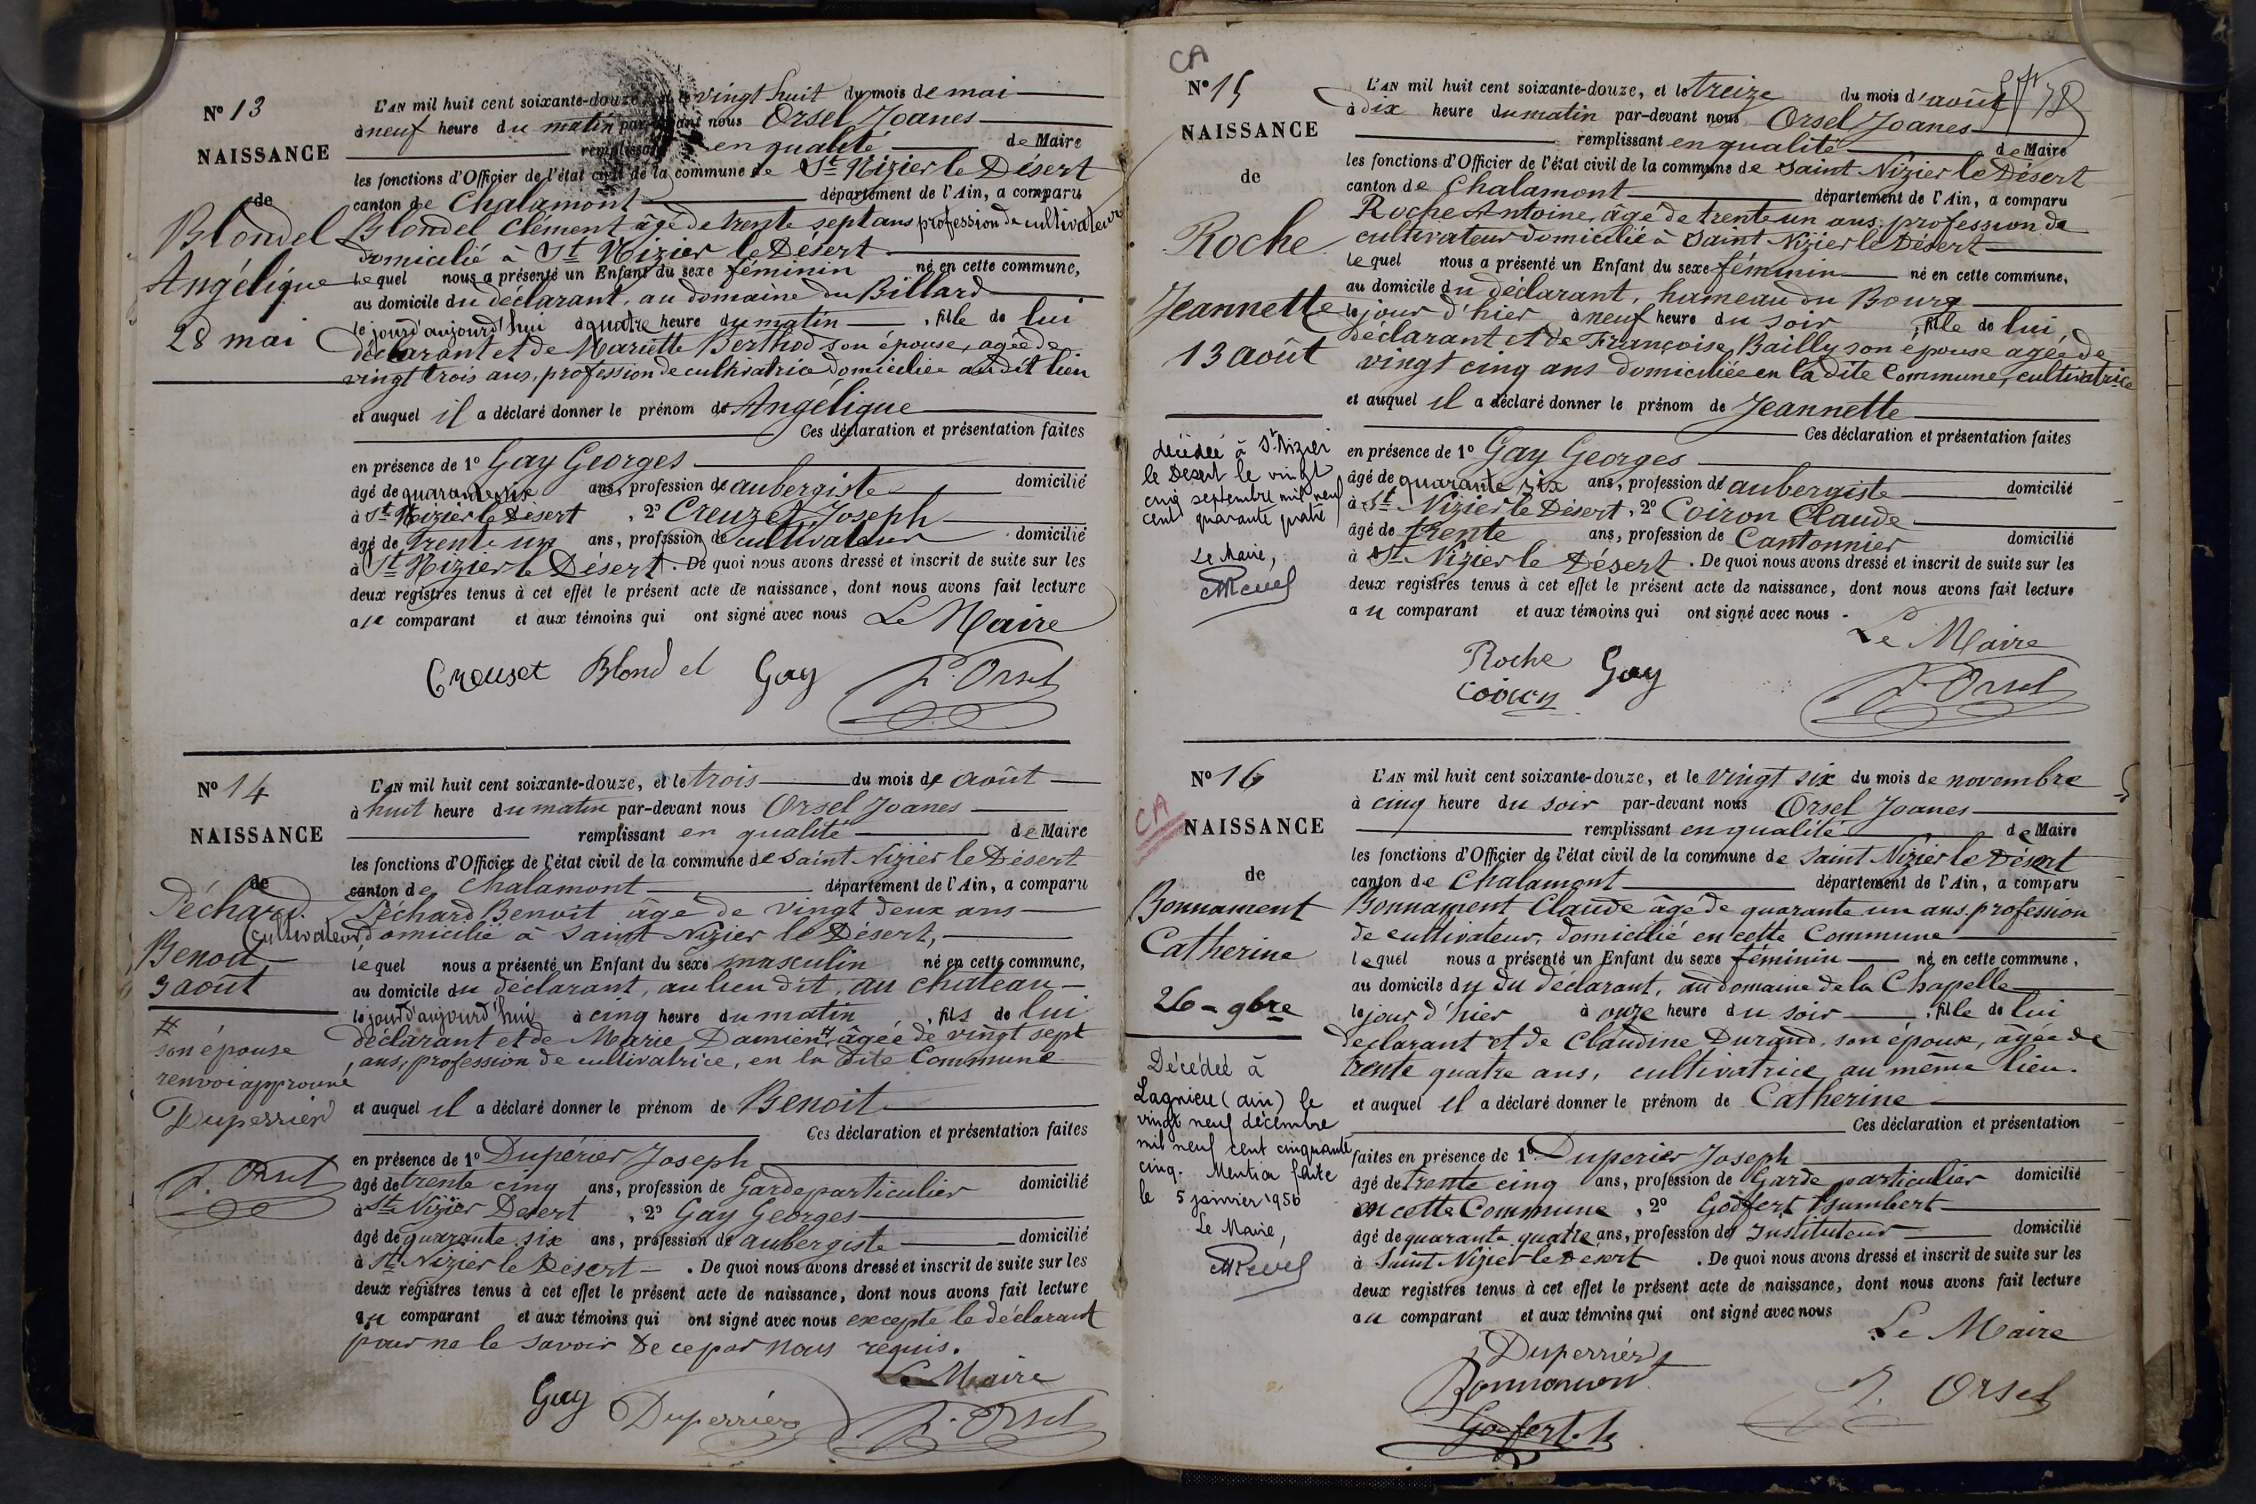 N° 13
NAISSANCE
de
Blondel
Angélique
28 mai
L'AN mil huit cent soixante-douze, et le vingt huit du mois de mai
à neuf heure du matin par-devant nous Orsel Joanes
remplissant en qualité de Maire
les fonctions d'Officier de l'état civil de la commune de St Nizier le Désert
canton de Chalamont département de l'Ain, a comparu
Blondel Clément âgé de trente sept ans profession de cultivateur
domicilié à St Nizier le Désert
lequel nous a présenté un Enfant du sexe féminin né en cette commune,
au domicile du déclarant, au domaine du Billard
le jour d'aujourd'hui à quatre heure du matin, fille de lui
déclarant et de Mariette Berthod son épouse, agée de
vingt trois ans, profession de cultivatrice domiciliée au dit lieu
et auquel il a déclaré donner le prénom de Angélique
Ces déclaration et présentation faites
en présence de 1° Gay Georges
âgé de quarante six ans, profession de aubergiste domicilié
à St Nizier le Désert, 2° Creuzet Joseph
âgé de trente un ans, profession de cultivateur domicilié
à St Nizier le Désert. De quoi nous avons dressé et inscrit de suite sur les
deux registres tenus à cet effet le présent acte de naissance, dont nous avons fait lecture
au comparant et aux témoins qui ont signé avec nous Le Maire
Creuset Blondel Gay J. Orsel
N° 14
NAISSANCE
de
Déchard
Benoit
3 août
#
son épouse
renvoi approuvé
Duperrier
J. Orsel
L'AN mil huit cent soixante-douze, et le trois du mois de août
à huit heure du matin par-devant nous Orsel Joanes
remplissant en qualité de Maire
les fonctions d'Officier de l'état civil de la commune de Saint Nizier le Désert
canton de Chalamont département de l'Ain, a comparu
Déchard Benoit âgé de vingt deux ans
(cultivateur) domicilié à Saint Nizier le Désert,
lequel nous a présenté un Enfant du sexe masculin né en cette commune,
au domicile du déclarant, au lieu dit, au château
le jour d'aujourd'hui à cinq heure du matin, fils de lui
déclarant et de Marie Damien # âgée de vingt sept
ans, profession de cultivatrice, en la dite Commune
et auquel il a déclaré donner le prénom de Benoit
Ces déclaration et présentation faites
en présence de 1° Dupérier Joseph
âgé de trente cinq ans, profession de Garde particulier domicilié
à St Nizier Desert, 2° Gay Georges
âgé de quarante six ans, profession de aubergiste domicilié
à St Nizier le Désert. De quoi nous avons dressé et inscrit de suite sur les
deux registres tenus à cet effet le présent acte de naissance, dont nous avons fait lecture
au comparant et aux témoins qui ont signé avec nous excepté le déclarant
pour ne le savoir de ce par nous requis.
Le Maire
Gay Duperrier J. Orsel
CA
N° 15
NAISSANCE
de
Roche
Jeannette
13 août
décédée à St Nizier
le Desert le vingt
cinq septembre mil neuf
cent quarante quatre
Le Maire,
L'AN mil huit cent soixante-douze, et le treize du mois d'août
à dix heure du matin par-devant nous Orsel Joanes
remplissant en qualité de Maire
les fonctions d'Officier de l'état civil de la commune de Saint Nizier le Désert
canton de Chalamont département de l'Ain, a comparu
Roche Antoine, âgé de trente un ans, profession de
cultivateur domicilié à Saint Nizier le Désert
lequel nous a présenté un Enfant du sexe féminin né en cette commune,
au domicile du déclarant, hameau du Bourg
le jour d'hier à neuf heure du soir, fille de lui,
déclarant et de Françoise Bailly son épouse agée de
vingt cinq ans domiciliée en la dite Commune, cultivatrice
et auquel il a déclaré donner le prénom de Jeannette
Ces déclaration et présentation faites
en présence de 1° Gay Georges
âgé de quarante six ans, profession de aubergiste domicilié
à St Nizier le Désert, 2° Coiron Claude
âgé de trente ans, profession de Cantonnier domicilié
à St Nizier le Désert. De quoi nous avons dressé et inscrit de suite sur les
deux registres tenus à cet effet le présent acte de naissance, dont nous avons fait lecture
au comparant et aux témoins qui ont signé avec nous.
Le Maire
Roche Gay
Coiron J. Orsel
N° 16
CA
NAISSANCE
de
Bonnament
Catherine
26 - 9bre
Décédée à
Lagnieu (ain) le
vingt neuf décembre
mil neuf cent cinquante
cinq. Mention faite
le 5 janvier 1956
Le Maire,
L'AN mil huit cent soixante-douze, et le vingt six du mois de novembre
à cinq heure du soir par-devant nous Orsel Joanes
remplissant en qualité de Maire
les fonctions d'Officier de l'état civil de la commune de Saint Nizier le Désert
canton de Chalamont département de l'Ain, a comparu
Bonnament Claude âgé de quarante un ans, profession
de cultivateur, domicilié en cette Commune
lequel nous a présenté un Enfant du sexe féminin né en cette commune,
au domicile du du déclarant, au domaine de la Chapelle
le jour d'hier à onze heure du soir, fille de lui
déclarant et de Claudine Durand, son épouse, âgée de
trente quatre ans, cultivatrice au même lieu.
et auquel il a déclaré donner le prénom de Catherine
Ces déclaration et présentation
faites en présence de 1° Duperier Joseph
âgé de trente cinq ans, profession de Garde particulier domicilié
en cette Commune, 2° Godfert Humbert
âgé de quarante quatre ans, profession de Instituteur domicilié
à Saint Nizier le Désert. De quoi nous avons dressé et inscrit de suite sur les
deux registres tenus à cet effet le présent acte de naissance, dont nous avons fait lecture
au comparant et aux témoins qui ont signé avec nous
Le Maire
Duperrier
Bonnamont J. Orsel
Godfert h